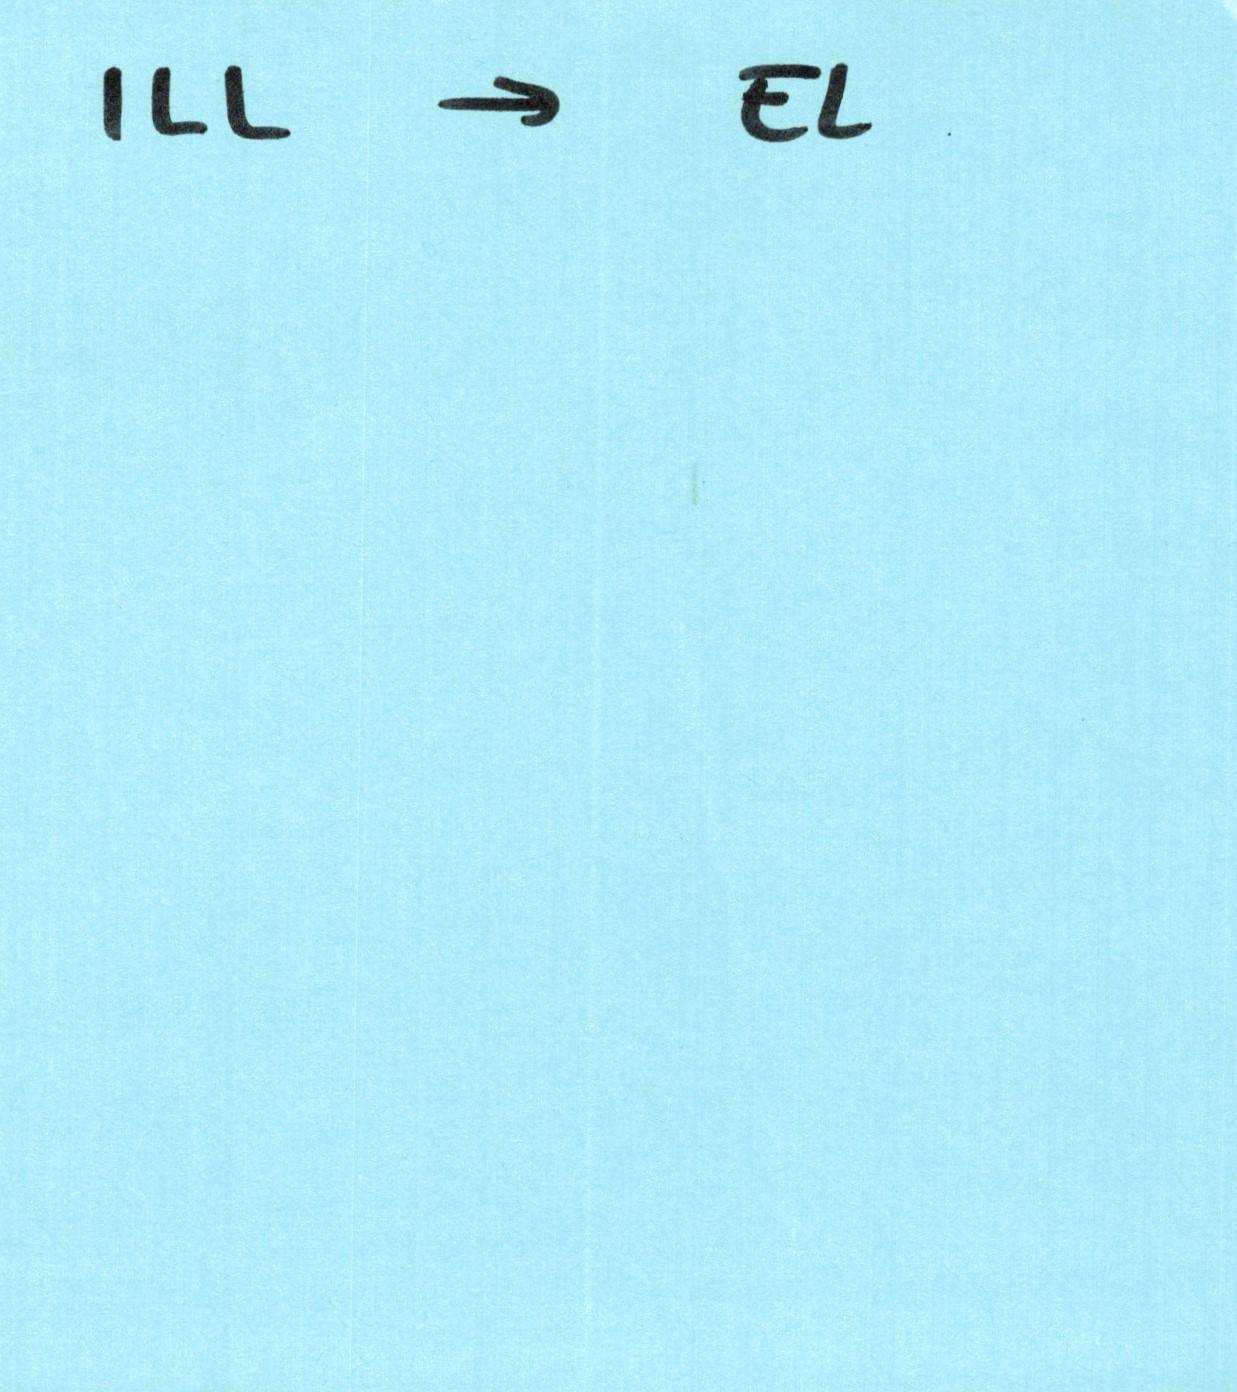 ILL → EL